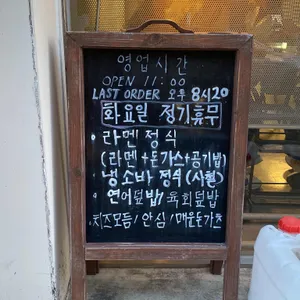 영업시간
OPEN 11:00
LAST ORDER 오후 8시20
화요일 정기휴무
·라멘정식
(라멘+돈가스+공기밥)
·냉소바 정식 (시원)
·연어덮밥/육회덮밥
·치즈모듬/안심/매운돈가츠